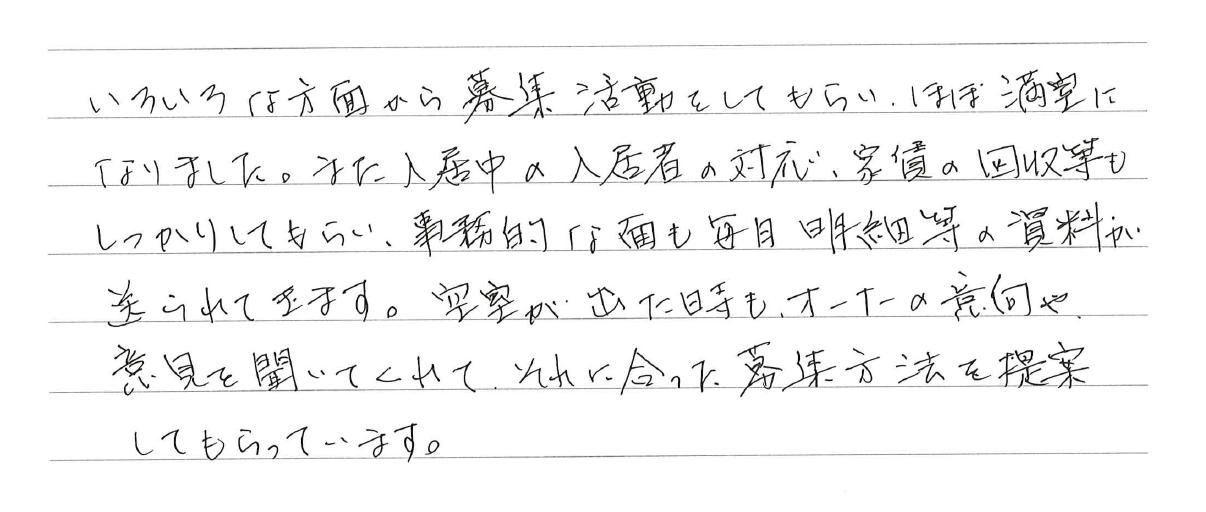 いろいろな方面から募集活動をしてもらい、ほぼ満室に
なりました。また入居中の入居者の対応、家賃の回収等も
しっかりしてもらい、事務的な面も毎月明細等の資料が
送られてきます。空室が出た時も、オーナーの意向や、
意見を聞いてくれて、それに合った募集方法を提案
してもらっています。